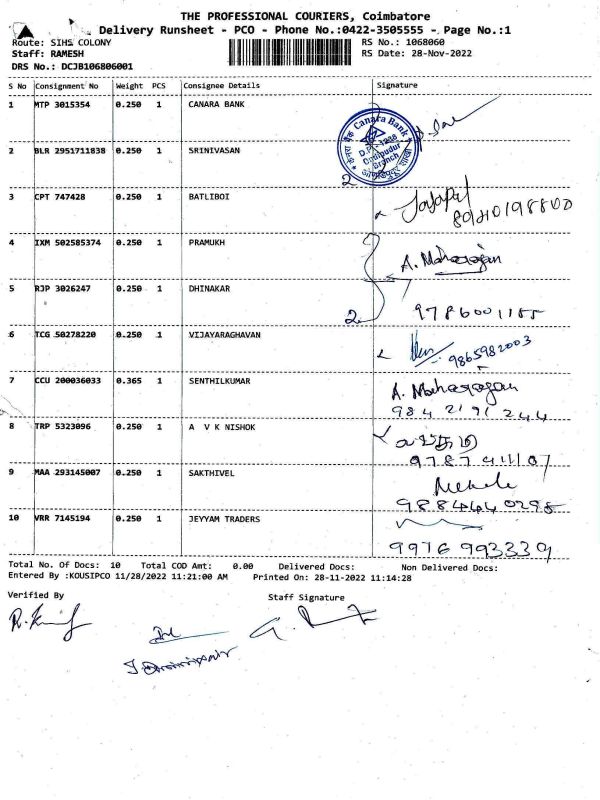 THE PROFESSIONAL COURIERS, Coimbatore
Delivery Runsheet - PCO - Phone No.:0422-3505555 - Page No.:1
Route: SIHS COLONY RS No.: 1068060
Staff: RAMESH RS Date: 28-Nov-2022
DRS No.: DCJB106806001
S No Consignment No Weight PCS Consignee Details Signature
1 MTP 3015354 0.250 1 CANARA BANK
Canara Bank
Branch
2 BLR 2951711838 0.250 1 SRINIVASAN
2
3 CPT 747428 0.250 1 BATLIBOI
4 IXM 502585374 0.250 1 PRAMUKH
A. Maharajan
5 RJP 3026247 0.250 1 DHINAKAR
2
6 TCG 50278220 0.250 1 VIJAYARAGHAVAN
9865982003
7 CCU 200036033 0.365 1 SENTHILKUMAR
A. Maharajan
984 2191 244
8 TRP 5323096 0.250 1 A V K NISHOK
9 MAA 293145007 0.250 1 SAKTHIVEL
9 8 8 4 4 4 0 2 9 5
10 VRR 7145194 0.250 1 JEYYAM TRADERS
9976 993339
Total No. Of Docs: 10 Total COD Amt: 0.00 Delivered Docs: Non Delivered Docs:
Entered By :KOUSIPCO 11/28/2022 11:21:00 AM Printed On: 28-11-2022 11:14:28
Verified By Staff Signature